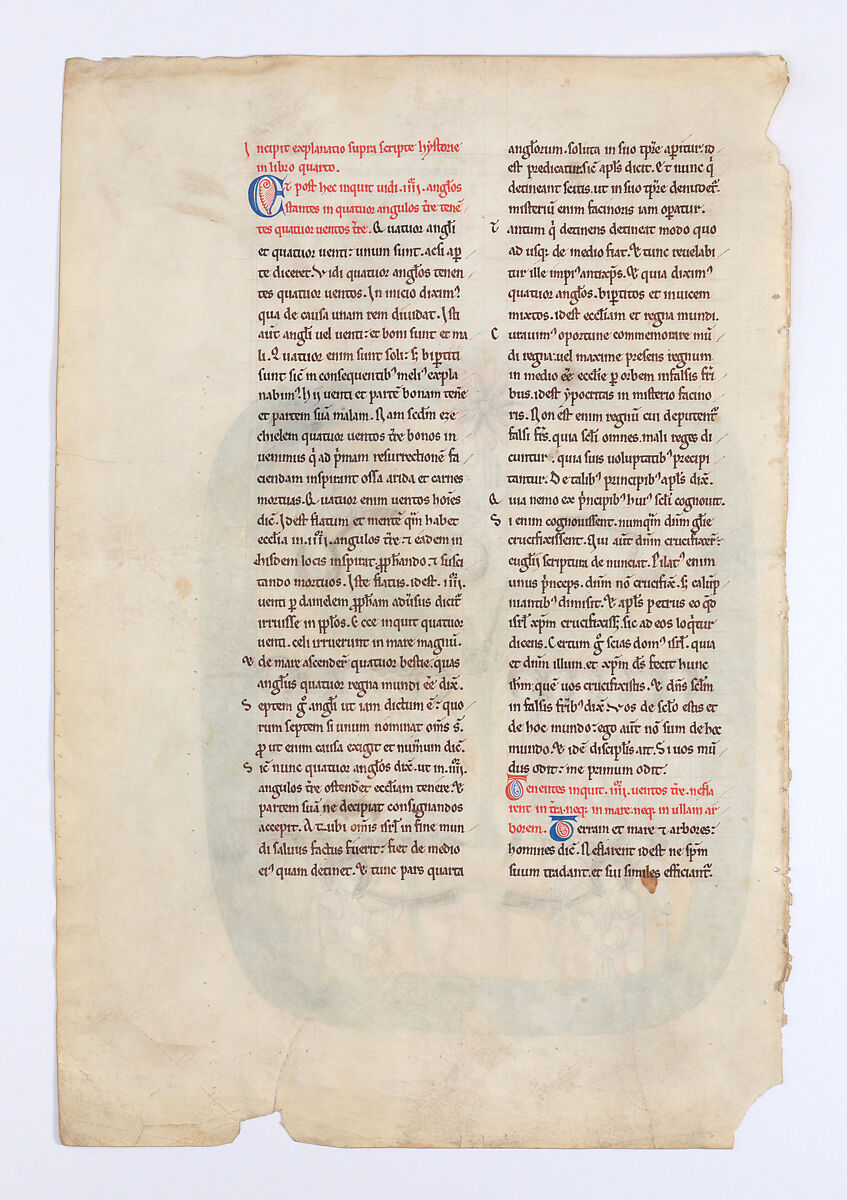 Incipit explanatio supra scripte hystorie
in libro quarto.
Et post hec inquit uidi .iiii. angl̃os
stantes in quatuor angulos tr̃re tenẽ
tes quatuor uentos tr̃re. Quatuor angl̃i
et quatuor uenti: unum sunt. acsi aꝑ
te diceret. Vidi quatuor angl̃os tenen
tes quatuor uentos. In inicio diximꝰ
qua de causa unam rem diuidat. Isti
aũt angl̃i uel uenti: et boni sunt et ma
li. Quatuor enim sunt soli: sꝫ biꝑtiti
sunt sic̃ in consequentibꝰ meliꝰ expla
nabimꝰ. hij uenti et partẽ bonam tenẽt
et partem suã malam. Nam scd̃m eze
chielem quatuor uentos tr̃re bonos in
uenimus q̇ ad p̃mam resurrectionẽ fa
ciendam inspirant ossa arida et carnes
mortuas. Quatuor enim uentos hoĩes
dic̃. Idest flatum et mentẽ qm̃ habet
eccl̃ia in .iiii. angulos tr̃re ⁊ eadem in
hisdem locis inspirat. ꝓph̃ando ⁊ susci
tando mortuos. Iste flatus. idest .iiii.
uenti ꝑ danielem ꝓph̃am adũsus dicit̃
irruisse in ip̃los. Ecce inquit quatuor
uenti. celi irruerunt in mare magnũ.
Et de mare ascender̃ quatuor bestie. quas
angl̃us quatuor regna mundi eẽ dix̃.
Septem g̊ angl̃i ut iam dictum ẽ: quo
rum septem si unum nominat om̃s s̃.
ꝓ ut enim causa exigit et num̃um dic̃.
Sic̃ nunc quatuor angl̃os dix̃. ut in .iiii.
angulos tr̃re ostender̃ eccl̃iam tenere. Et
partem suã ne decipiat consignandos
accepit. At ubi om̃is isrl̃ in fine mun
di saluus factus fuerit: fiet de medio
eiꝰ quam detinet. Et tunc pars quarta
angl̃orum. soluta in suo tp̃re aperitur. id
est predicatur. sic̃ apl̃s dicit. Et nunc q̇
detineant scitis. ut in suo tp̃re denudet̃.
misteriũ enim facinoris iam operatur.
Tantum q̇ detinens detineat modo quo
ad usqꝫ de medio fiat. Et tunc reuelabi
tur ille impiꝰ antixp̃s. Et quia diximꝰ
quatuor angl̃os. biꝑtitos et inuicem
mixtos. idest eccl̃iam et regna mundi.
Curauimꝰ oportune commemorare mũ
di regna: uel maxime presens regnum
in medio eẽ eccl̃ie ꝑ orbem in falsis fr̃i
bus. idest ypocritas in misterio facino
ris. Non est enim regnũ cui deputent̃
falsi fr̃s. quia scl̃i omnes. mali reges di
cuntur. quia suis uoluptatibꝰ precipi
tantur. De talibꝰ principibꝰ apl̃s dix̃.
Quia nemo ex p̃ncipibꝰ huiꝰ scl̃i cognouit.
Si enim cognouissent. numqm̃ dn̄m gl̃ie
crucifixissent. Qui aũt dn̄m crucifixer̃:
eugl̃ij scriptura denunciat. Pilatꝰ enim
unus p̃nceps. dn̄m nõ crucifix̃. sꝫ calũp
niantibꝰ dimisit. Et apl̃s petrus eo qd̃
isrl̃ xp̃m crucifixissꝫ. sic ad eos loq̃tur
dicens. Certum g̊ scias domꝰ isrl̃. quia
et dn̄m illum. et xp̃m ds̃ fecit hunc
ih̃m. quẽ uos crucifixistis. Et dn̄s scl̃m
in falsis fr̃ibꝰ dix̃. Vos de scl̃o estis et
de hoc mundo: ego aũt nõ sum de hoc
mundo. Et idẽ discipl̃is ait. Si uos mũ
dus odit: me primum odit.
Tenentes inquit .iiii. uentos tr̃re. ne fla
rent in tr̃a. neqꝫ in mare. neqꝫ in ullam ar
borem. Terram et mare ⁊ arbores:
homines dic̃. Ne flarent idest ne sp̃m
suum tradant. et sui similes efficiant̃.